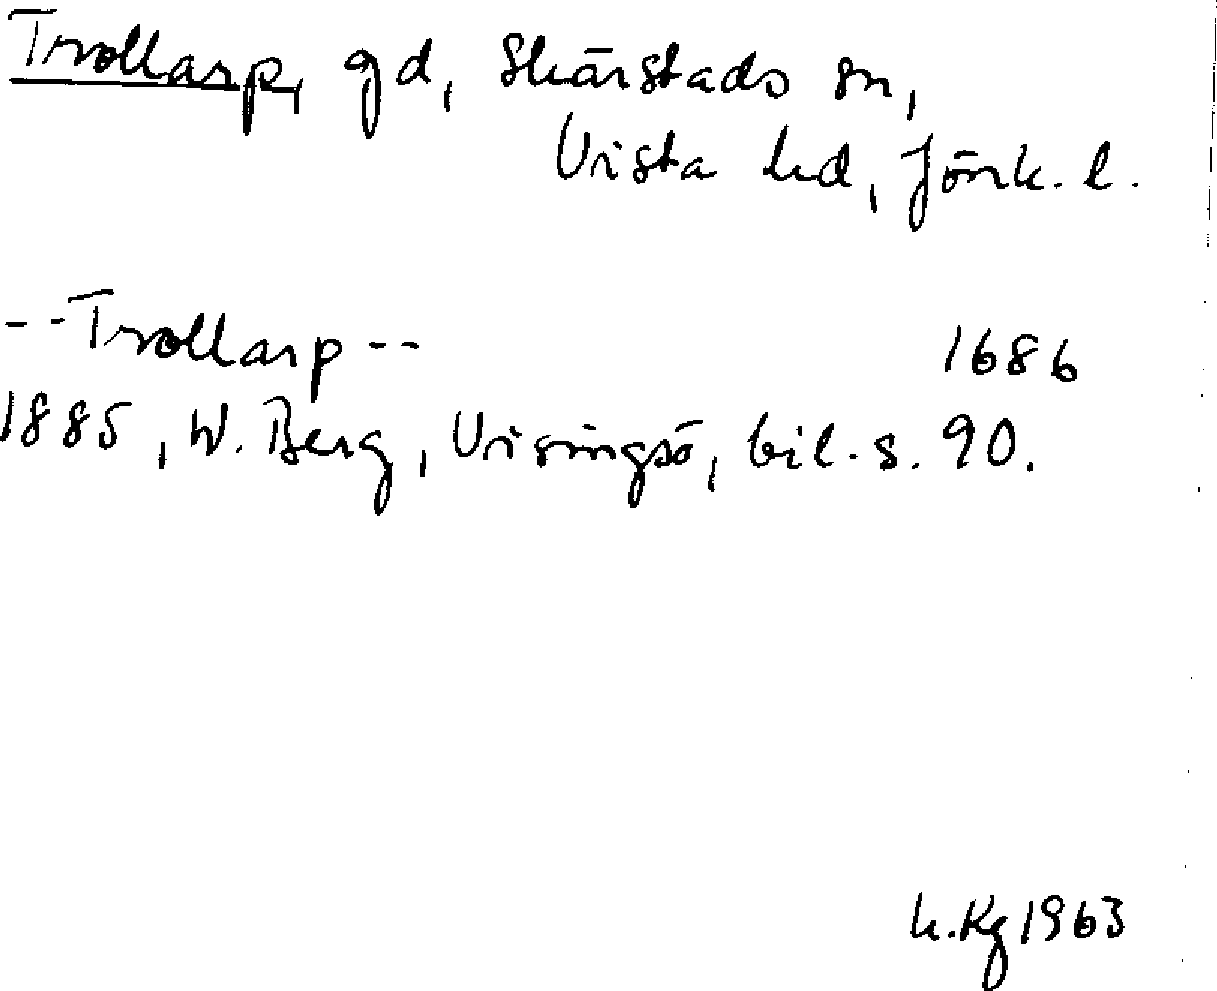 Trollarp, gd, Skärstads sn,
Vista hd, Jönk. l.
--Trollarp-- 1686
1885, W. Berg, Visingsö, bil. s. 90.
h.Kg 1963